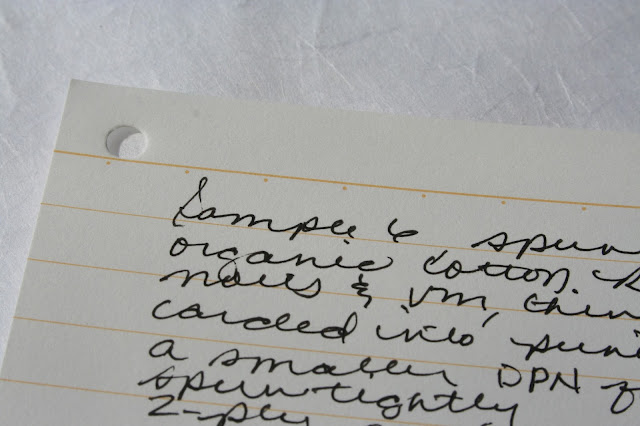 Sample 6 spun
organic cotton.
noils & VM, then
carded into puni
a smaller DPN
spun tightly
2-ply